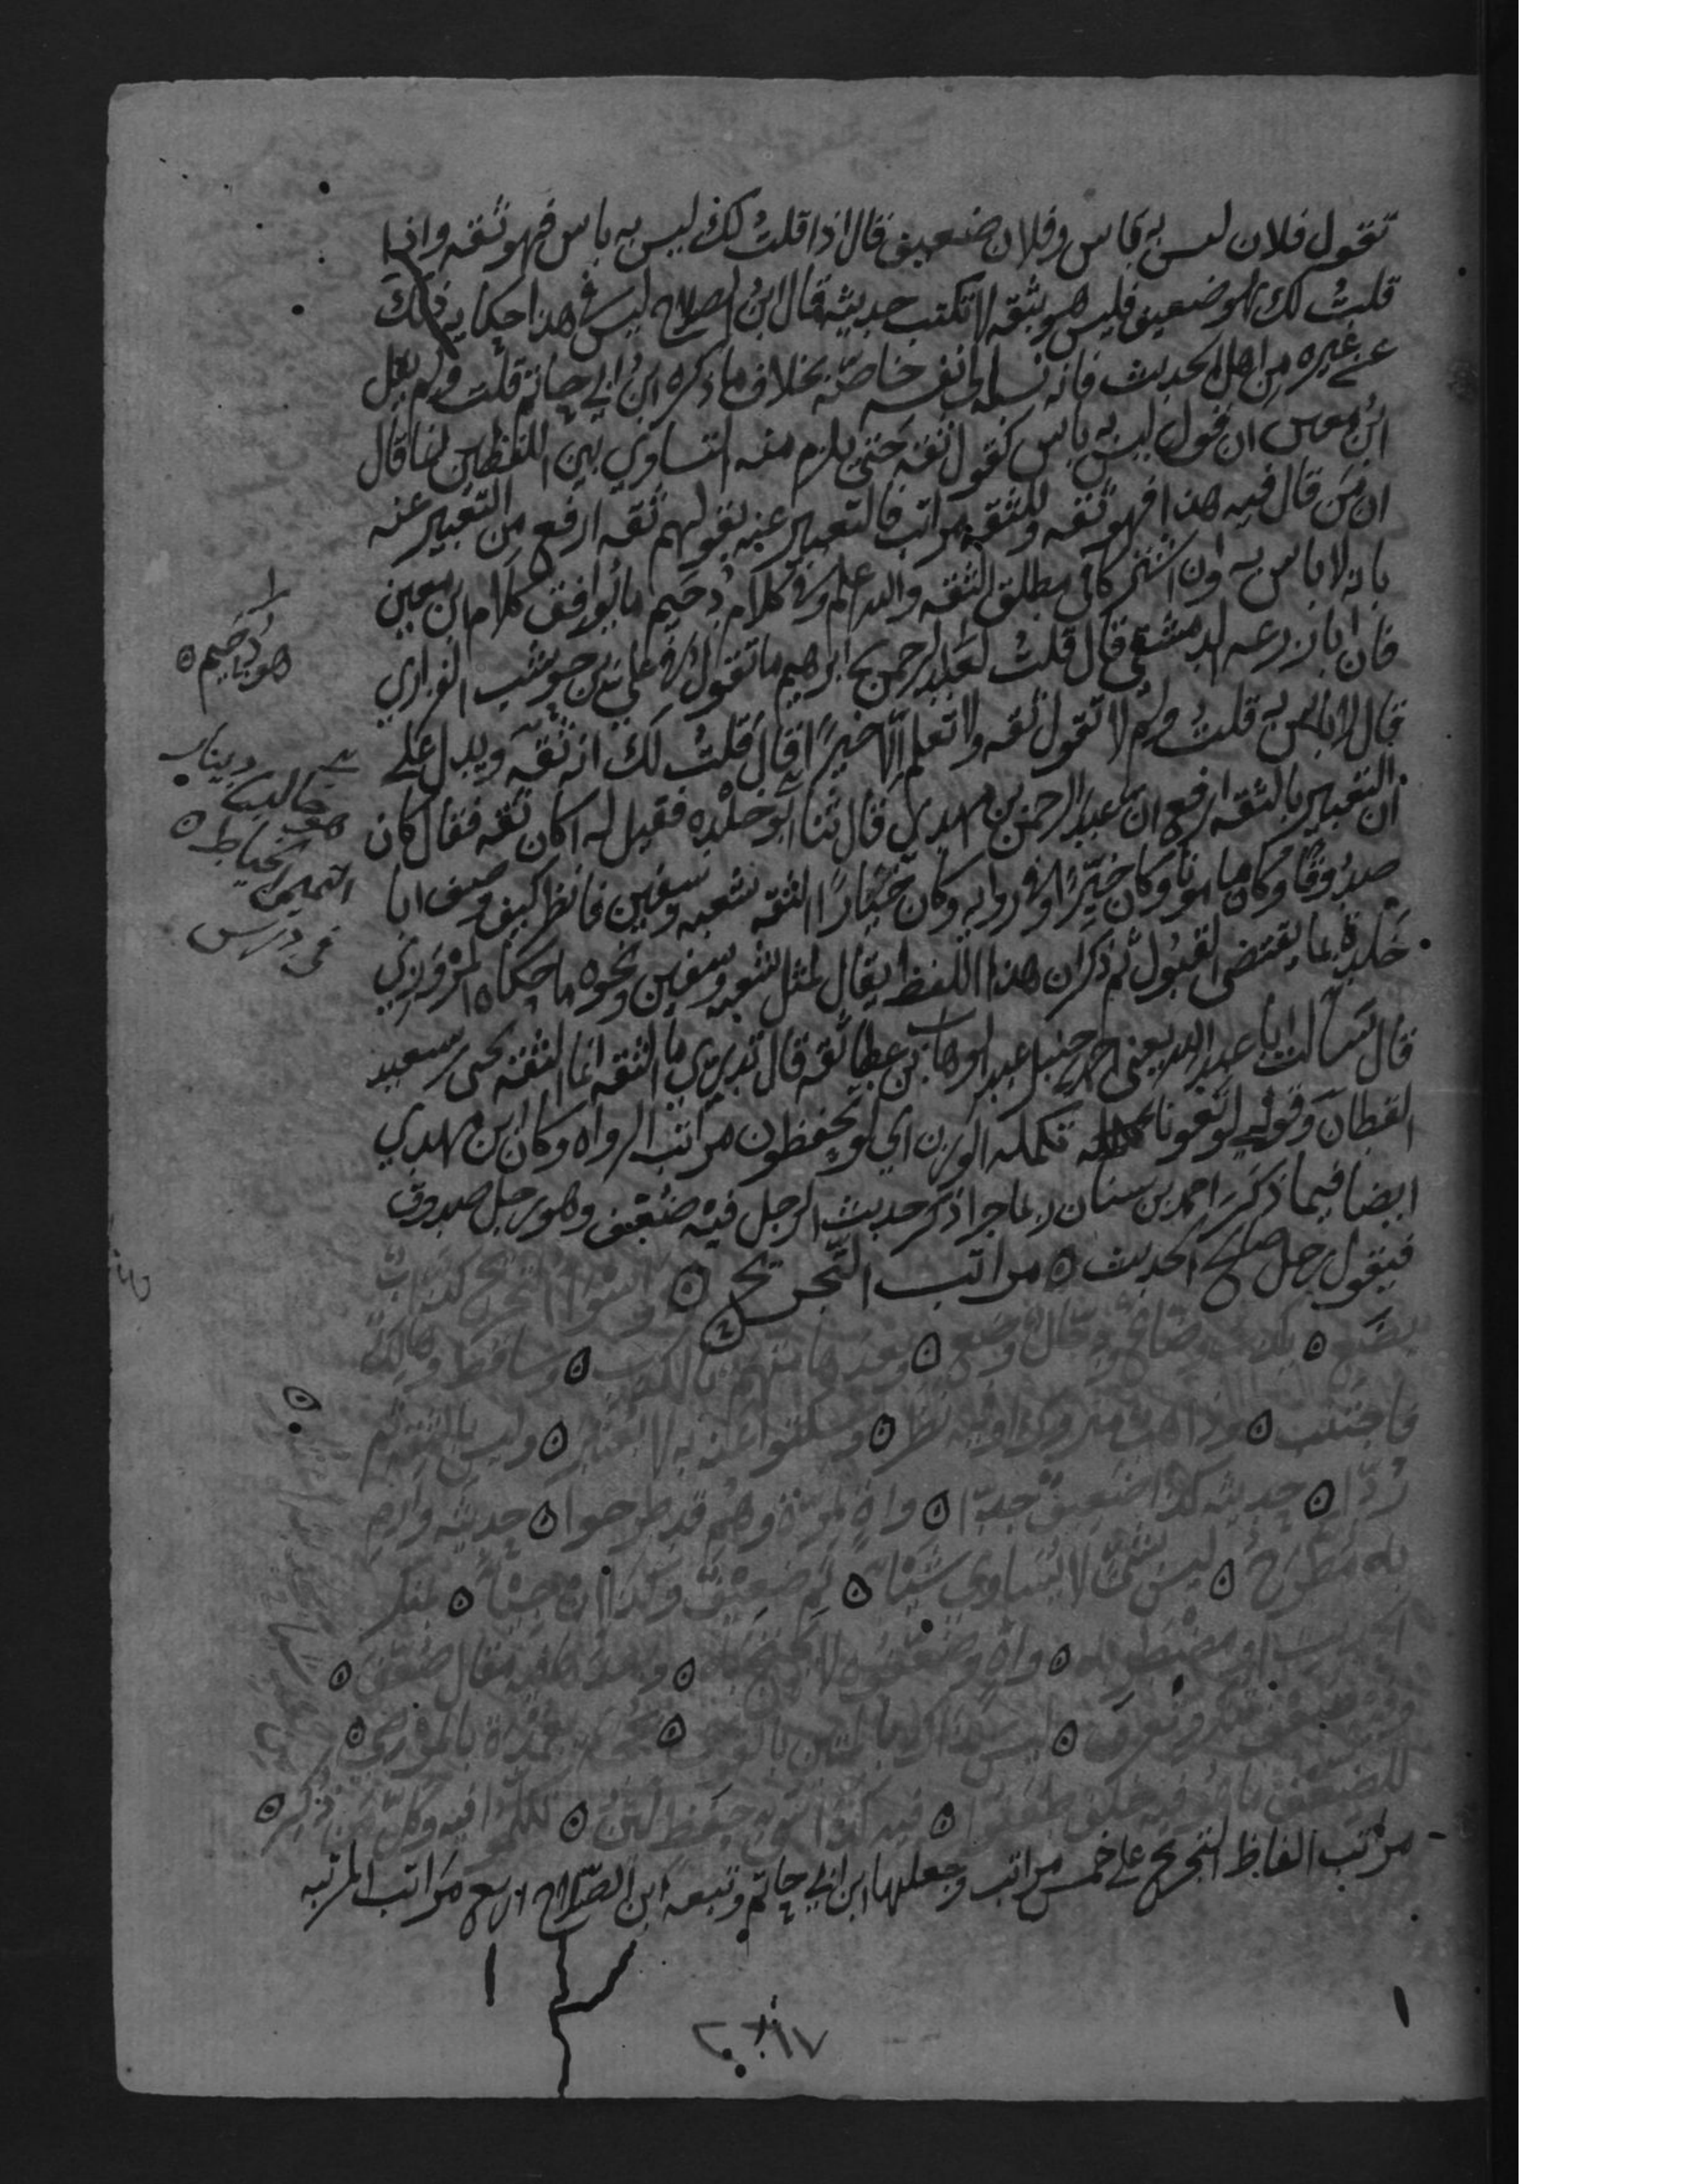 تقول فلان ليس به باس وفلان ضعيف قال اذا قلت لك ليس به باس فهو ثقه واذا
قلت لك هو ضعيف فليس هو بثقه لا تكتب حديثه قال ابن الصلاح ليس في هذا حكاية ذلك
عن غيره من اهل الحديث فانه نسبه الى نفسه خاصة بخلاف ما ذكره ابن ابي حاتم قلت ولم يقل
ابن معين ان قولي ليس به باس كقولي ثقه حتى يلزم منه التساوي بين اللفظين انما قال
ان من قال فيه هذا فهو ثقه وللثقه مراتب فالتعبير عنه بقولهم ثقه ارفع من التعبير عنه
بانه لا باس به وان اشتركا في مطلق الثقه والله اعلم وفي كلام دحيم ما يوافق كلام ابن معين
فان ابا زرعه الدمشقي قال قلت لعبد الرحمن بن ابرهيم ما تقول في علي بن حوشب الفزاري
قال لا باس به قلت ولم لا تقول ثقه ولا تعلم الا خيرا قال قد قلت لك انه ثقه ويدل على
ان التعبير بالثقه ارفع ان عبد الرحمن بن مهدي قال ثنا ابو خلده فقيل له اكان ثقه فقال كان
صدوقا وكان مامونا وكان خيرا وفي روايه وكان خيارا الثقه شعبه وسفين فانظر كيف وصف ابا
خلدة بما يقتضي القبول ثم ذكر ان هذا اللفظ يقال لمثل شعبه وسفين ونحوه ما حكاه المروزي
قال سالت ابا عبد الله يعني احمد بن حنبل عبد الوهاب بن عطا ثقه قال تدري ما الثقه انما الثقه يحيى بن سعيد
القطان وقولي لو تعونا تكمله الوزن اي لو تحفظون مراتب الرواه وكان ابن مهدي
ايضا فيما ذكر احمد بن سنان ربما جرا ذكر حديث الرجل فيه ضعف وهو رجل صدوق
فيقول رجل صالح الحديث مراتب التجريح واسوا التجريح كذاب
يضع يكذب وضاع ودجال وضع وبعدها متهم بالكذب وساقط وهالك
فاجتنب وذاهب متروك او فيه نظر وسكتوا عنه به لا يعتبر وليس بالثقه ثم
ردا حديثه كذا ضعيف جدا واه بمرة وهم قد طرحوا حديثه وارم
به مطرح ليس بشئ لا يساوي شيئا ثم ضعيف وكذا ان جيئا بمنكر
الحديث او مضطربه واه وضعفوه لا يحتج به وبعدها فيه مقال ضعف
وفيه ضعف تنكر وتعرف ليس بذاك بالمتين بالقوي بحجة بعمدة بالمرضي
للضعف ما هو فيه خلف طعنوا فيه كذا سيئ حفظ لين تكلموا فيه وكل من ذكر
مراتب الفاظ التجريح على خمس مراتب وجعلها ابن ابي حاتم وتبعه ابن الصلاح اربع مراتب المرتبه
هو دحيم
هو خالد بن دينار
التميمي الخياط